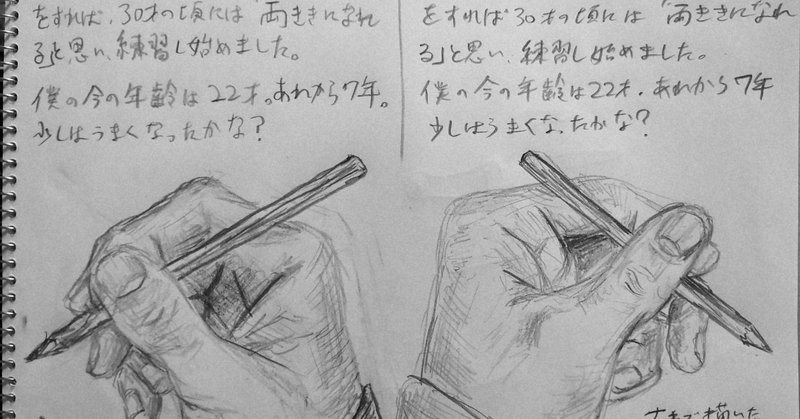 をすれば、30才の頃には「両ききになれ
る」と思い、練習し始めました。
僕の今の年齢は22才。あれから7年。
少しはうまくなったかな？
をすれば30才の頃には「両ききになれ
る」と思い、練習し始めました。
僕の今の年齢は22才。あれから7年
少しはうまくなったかな？
で描いた